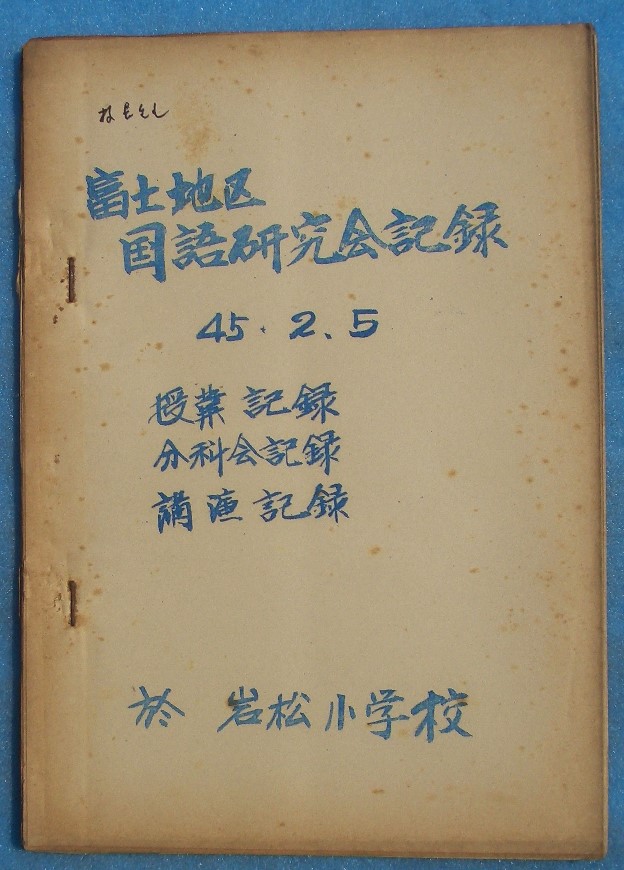 富士地区
国語研究会記録
45.2.5
授業記録
分科会記録
講演記録
於 岩松小学校